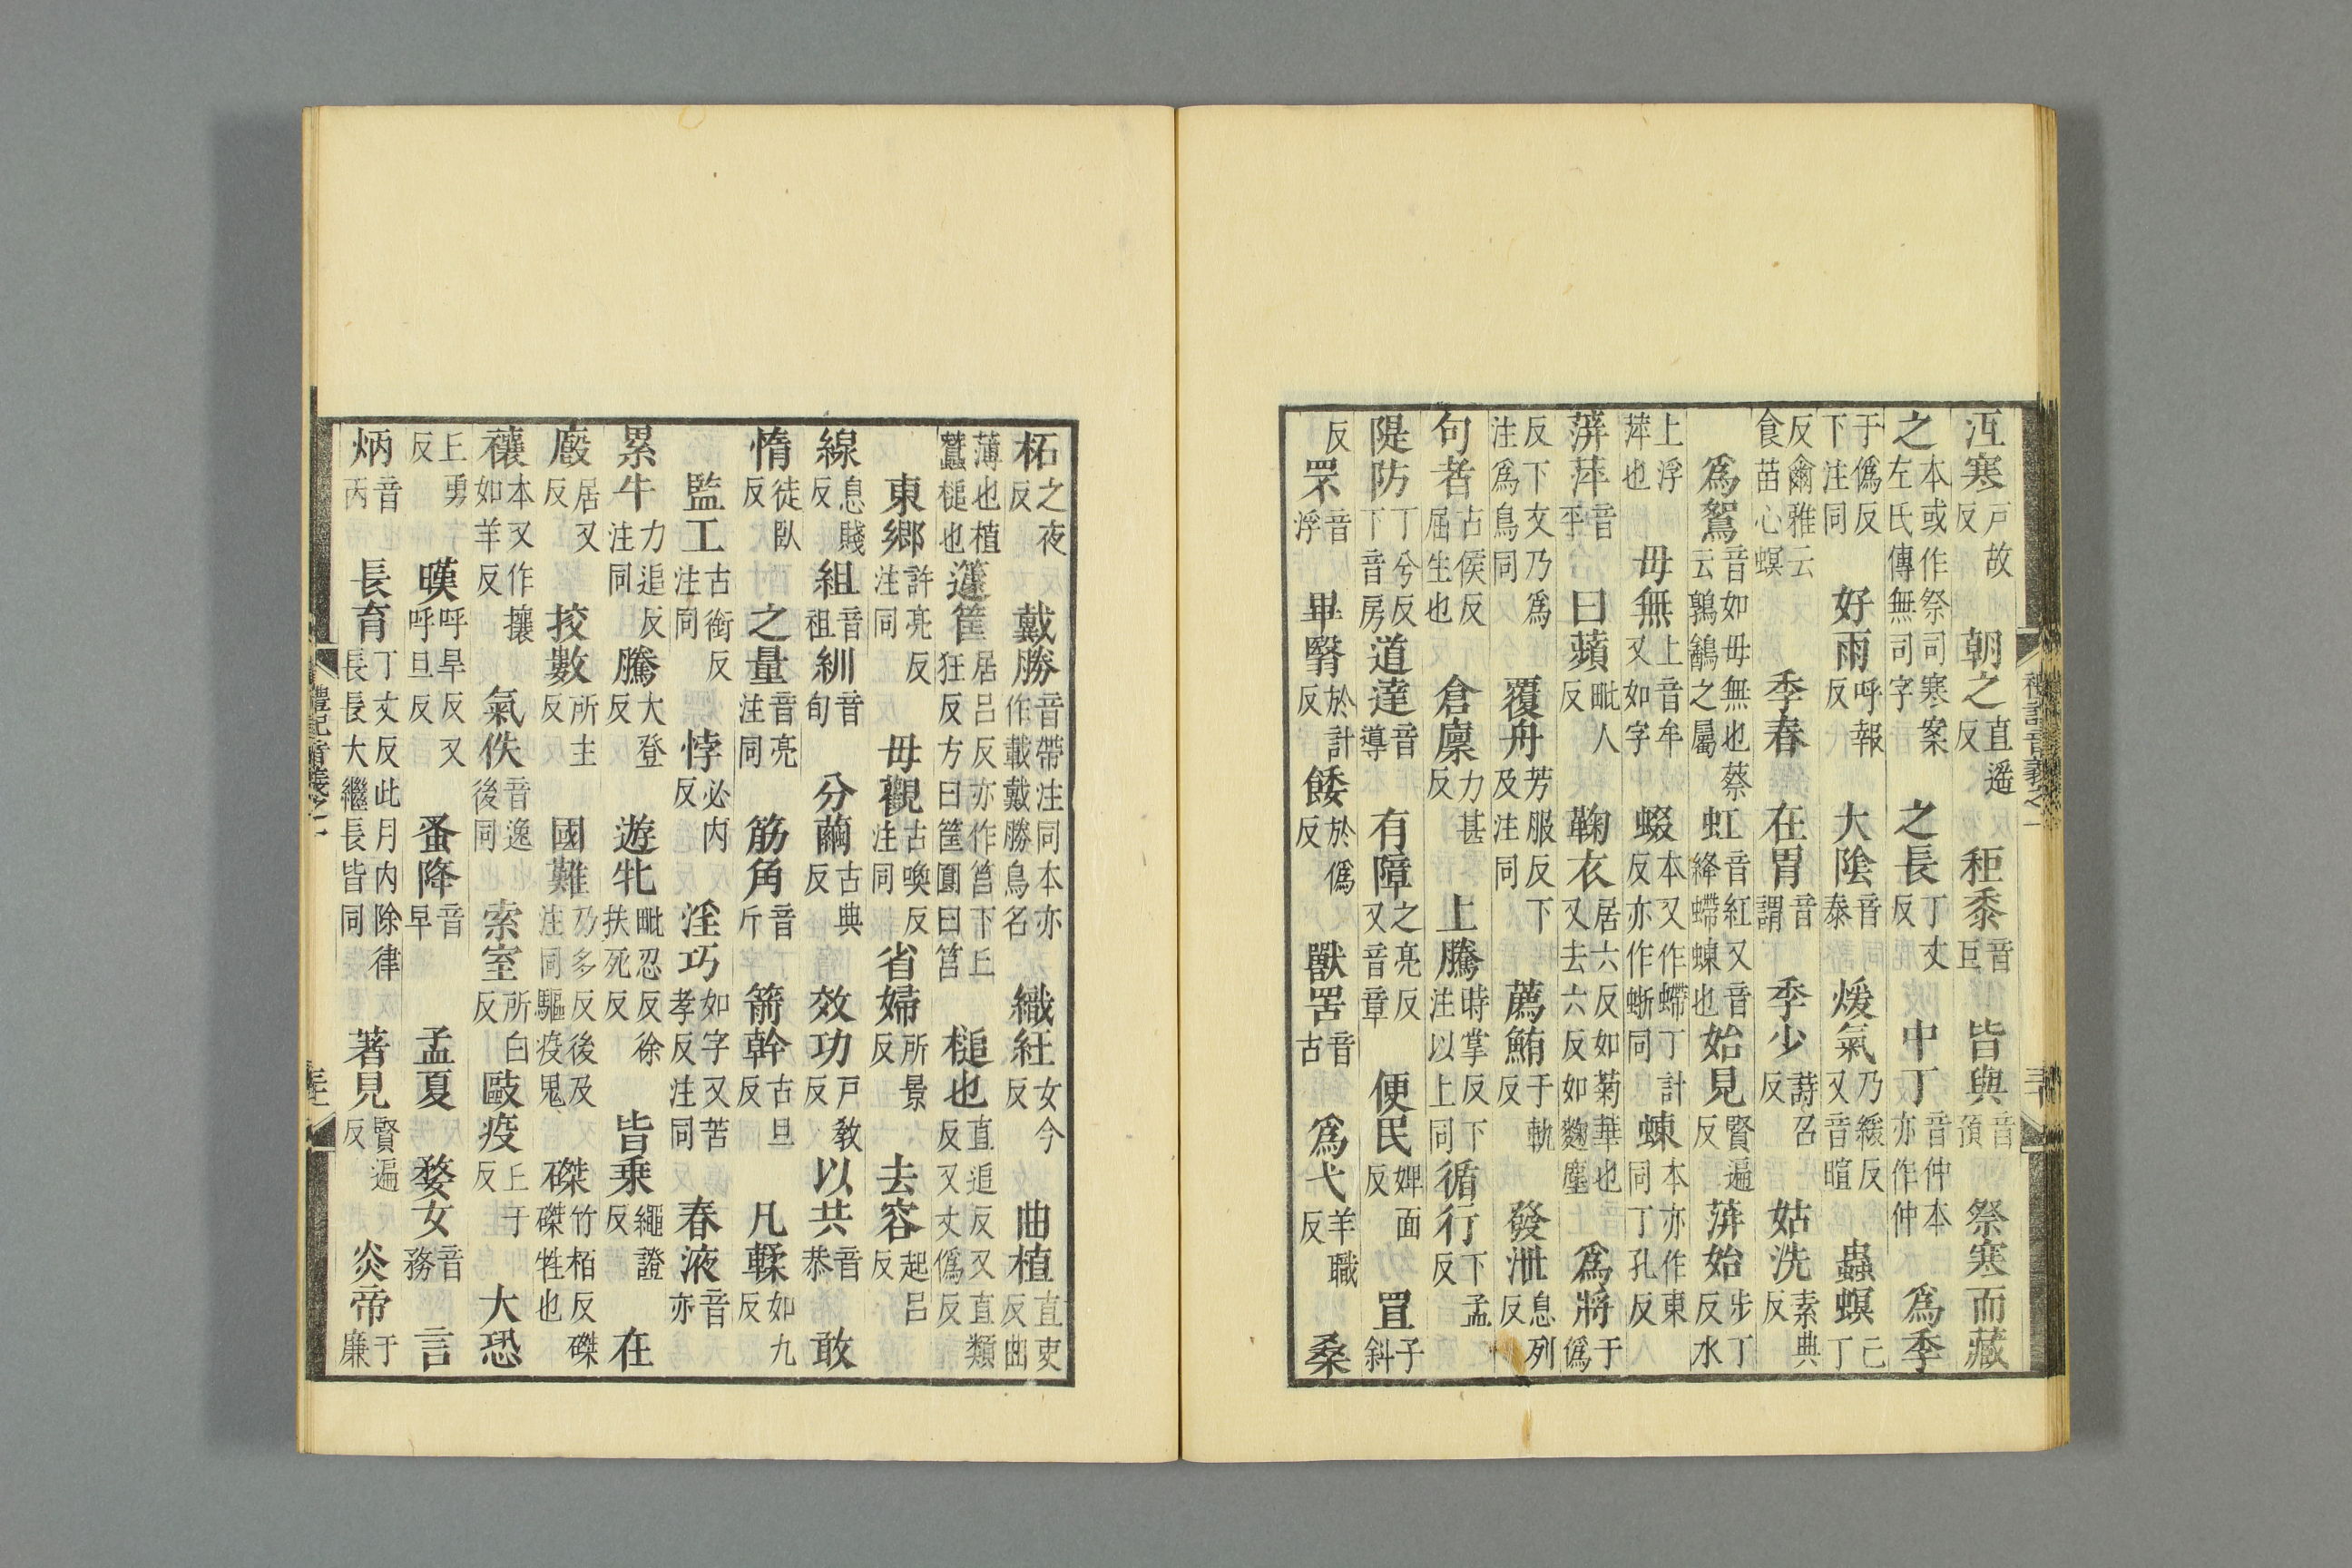 沍寒戶故反朝之直遥反秬黍音巨皆與音預祭寒而藏
之本或作祭司寒案左氏傳無司字之長丁丈反中丁音仲本亦作仲爲季
于僞反下注同好雨呼報反大陰音泰煖氣乃緩反又音暄蟲螟亡丁
反爾雅云食苗心螟季春在胃音謂季少詩召反姑洗素典反
爲鴛音如毋無也蔡云鶉鷃之屬虹音紅又音絳螮蝀也始見賢遍反蓱始步丁反水
上浮萍也毋無上音牟又如字蝃本又作螮丁計反亦作蜥同蝀本亦作東同丁孔反
蓱萍音平曰蘋毗人反鞠衣居六反如菊華也又去六反如麴塵爲將于僞
反下文乃爲注爲鳥同覆舟芳服反下及注同薦鮪于軌反發泄息列反
句者古侯反屈生也倉廩力甚反上騰時掌反下注以上同循行下孟反
隄防丁兮反下音房道達音導有障之亮反又音章便民婢面反罝子斜
反罘音浮畢翳於計反餧於僞反獸罟音古爲弋羊職反桑
禮記音義之一
柘之夜反戴勝音帶注同本亦作載戴勝鳥名織紝女今反曲植直吏反曲
薄也植蠶槌也籧筐居呂反亦作筥下丘狂反方曰筐圓曰筥槌也直追反又直類反又丈僞反
東鄉許亮反注同毋觀古喚反注同省婦所景反去容起呂反
線息賤反組音祖紃音旬分繭古典反效功戶教反以共音恭敢
惰徒臥反之量音亮注同筋角音斤箭幹古旦反凡輮如九反
監工古銜反注同悖必內反淫巧如字又苦孝反注同春液音亦
累牛力追反注同騰大登反遊牝毗忍反徐扶死反皆乘繩證反在
廏居又反挍數所主反國難乃多反後及注同驅疫鬼磔竹栢反磔磔牲也
禳本又作攘如羊反氣佚音逸後同索室所白反敺疫上于反大恐
丘勇反暵呼旱反又呼旦反蚤降音早孟夏婺女音務言
炳音丙長育丁丈反此月內除律長長大繼長皆同著見賢遍反炎帝于廉
禮記音義之一